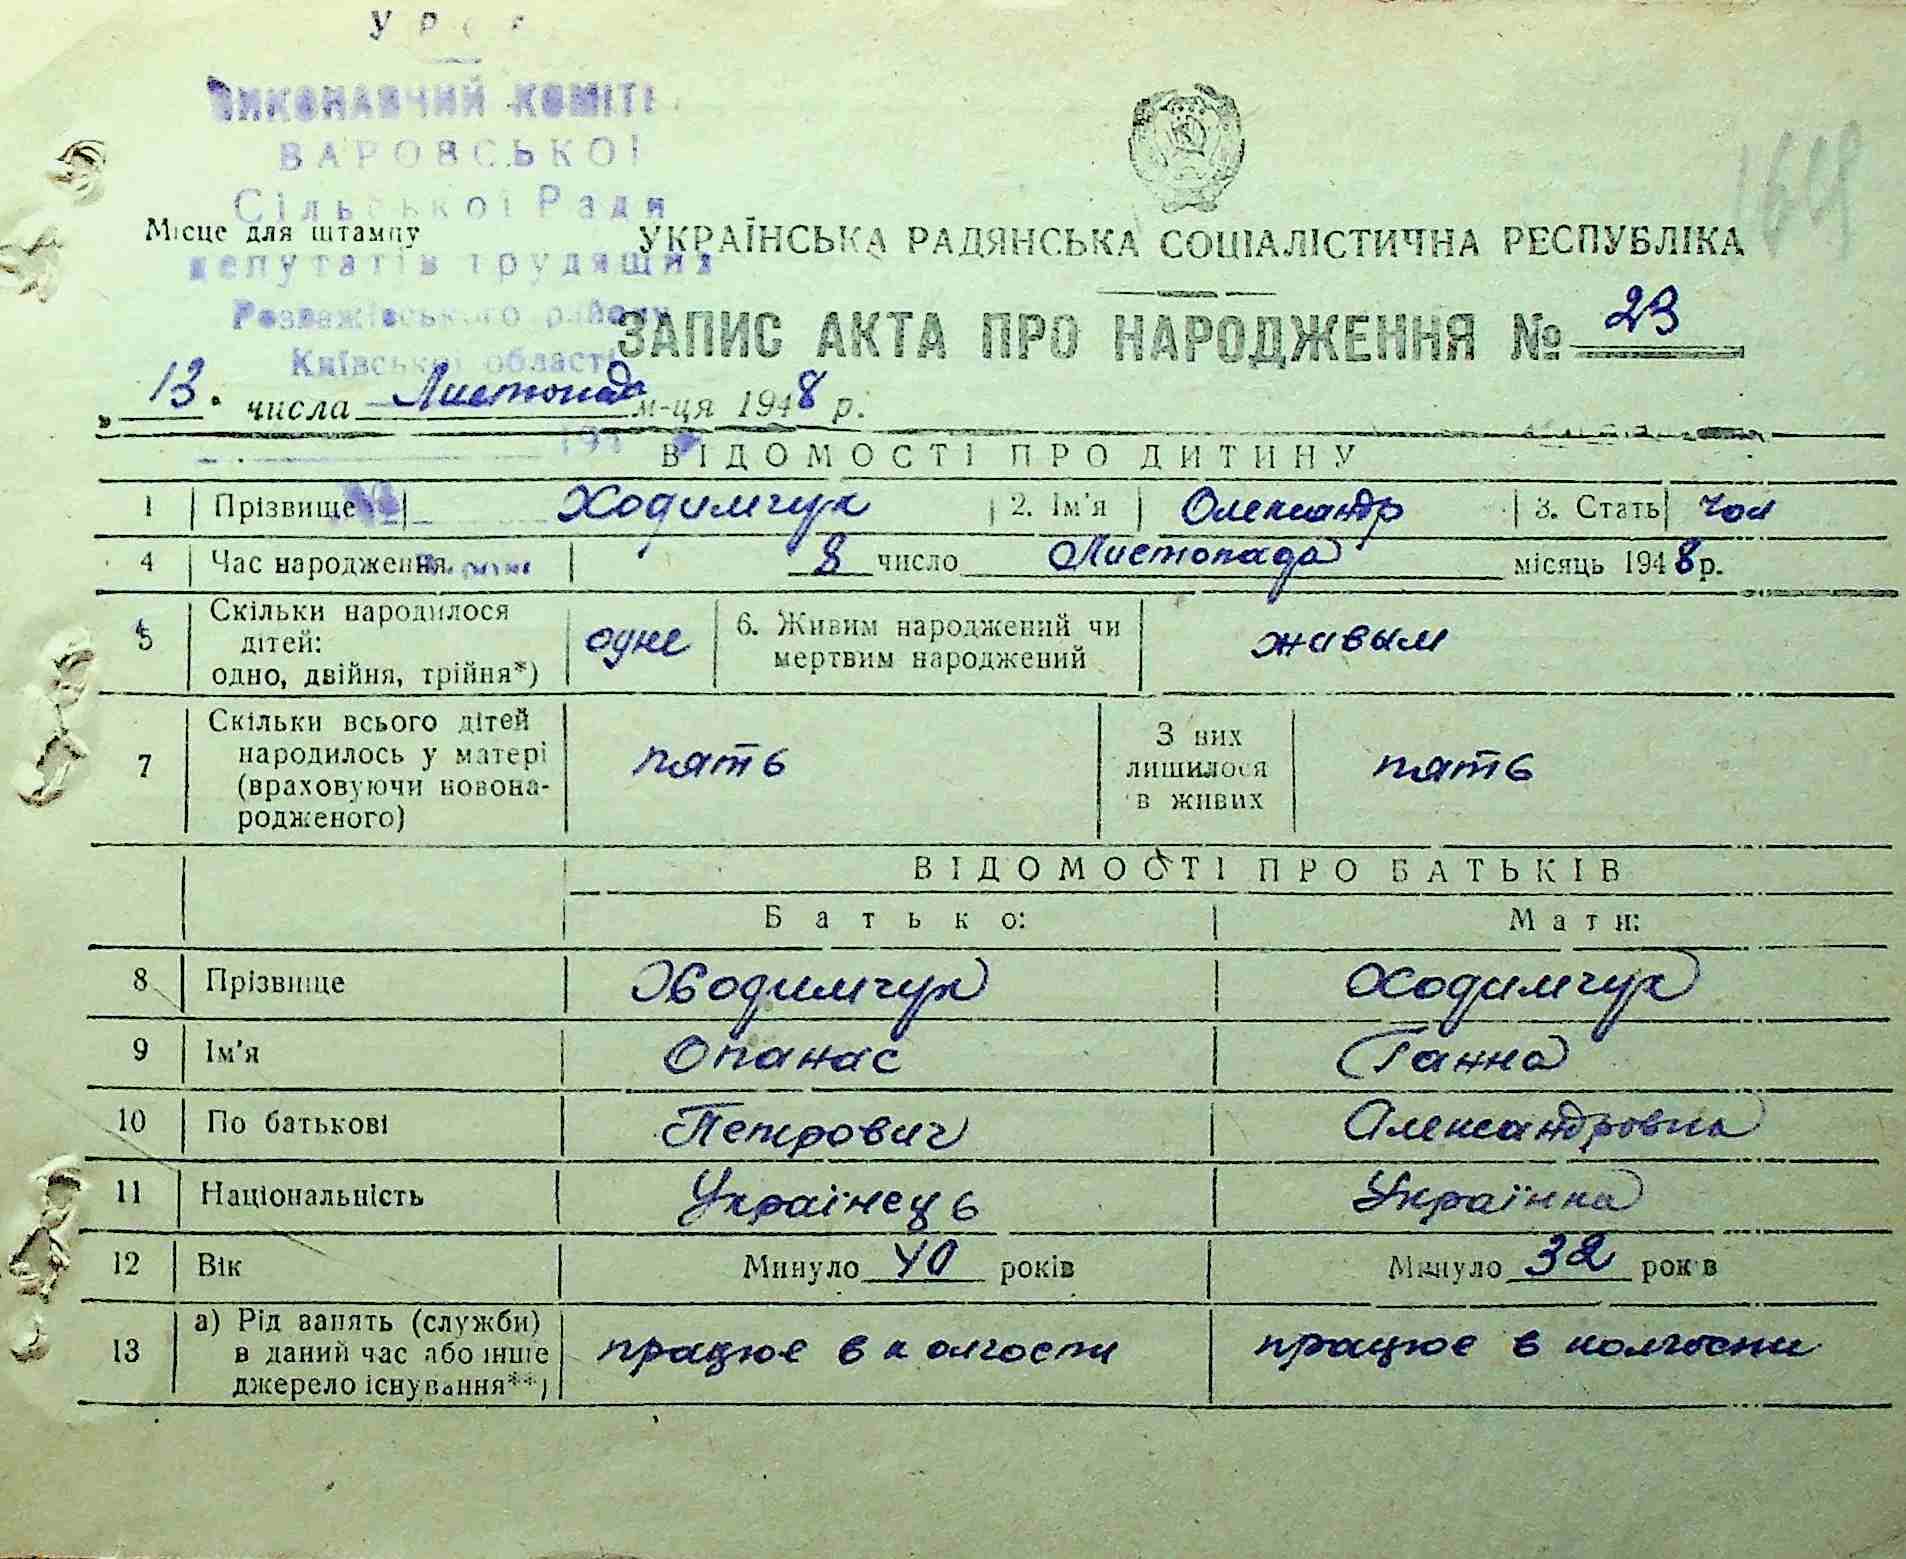 ВИКОНАВЧИЙ КОМІТЕ
ВАРОВСЬКОЇ
Сільської Ради
Місце для штампу
депутатів трудящих
Розважівського району
Київської області
УКРАЇНСЬКА РАДЯНСЬКА СОЦІАЛІСТИЧНА РЕСПУБЛІКА
ЗАПИС АКТА ПРО НАРОДЖЕННЯ № 23
„ 13 " числа Листопада м-ця 1948 р.
ВІДОМОСТІ ПРО ДИТИНУ
1 Прізвище Ходимчук 2. Ім'я Олександр 3. Стать чол
4 Час народження 8 число Листопада місяць 1948 р.
5 Скільки народилося дітей: одно, двійня, трійня*) одне 6. Живим народжений чи мертвим народжений живым
7 Скільки всього дітей народилось у матері (враховуючи новонародженого) пять З них лишилося в живих пять
ВІДОМОСТІ ПРО БАТЬКІВ
Батько: Мати:
8 Прізвище Ходимчук Ходимчук
9 Ім'я Опанас Ганна
10 По батькові Петрович Александровна
11 Національність Українець Українка
12 Вік Минуло 40 років Минуло 32 років
13 а) Рід занять (служби) в даний час або інше джерело існування**) працює в колгоспи працює в колгоспи